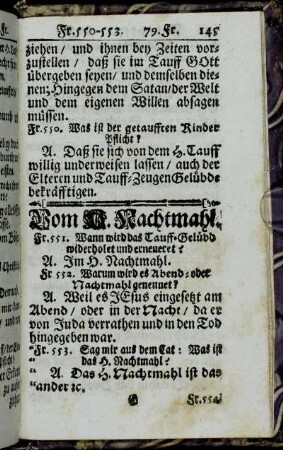 Fr. 550-553. 79. Fr. 145
ziehen / und ihnen bey Zeiten vor-
zustellen / daß sie im Tauff GOtt
übergeben seyen / und demselben die-
nen; Hingegen dem Satan / der Welt
und dem eigenen Willen absagen
müssen.
Fr. 550. Was ist der getaufften Kinder
Pflicht?
A. Daß sie sich von dem H. Tauff
willig underweisen lassen / auch der
Elteren und Tauff-Zeugen Gelübde
bekräfftigen.
Vom H. Nachtmahl.
Fr. 551. Wann wird das Tauff-Gelübd
widerholet und erneueret?
A. Im H. Nachtmahl.
Fr 552. Warum wird es Abend- oder
Nachtmahl genennet?
A. Weil es JEsus eingesetzt am
Abend / oder in der Nacht / da er
von Juda verrathen und in den Tod
hingegeben war.
"Fr. 553. Sag mir aus dem Cat: Was ist
" das H. Nachtmahl?
" A. Das H. Nachtmahl ist das
"ander ꝛc.
Fr. 554.